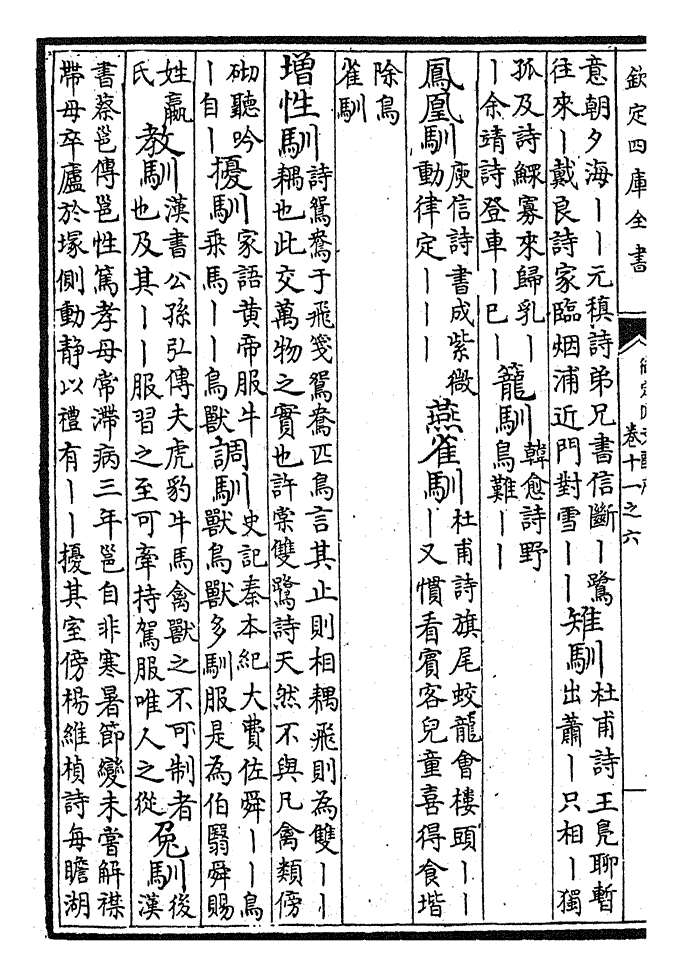 欽定四庫全書
卷十一之六
意朝夕海——元稹詩弟兄書信斷—鷺往來—戴良詩家臨烟浦近門對雪——雉馴杜甫詩王鳧聊暫出蕭—只相—獨
孤及詩鰥寡來歸乳——余靖詩登車—已—籠馴韓愈詩野鳥難——
鳳凰馴庾信詩書成紫微動律定———燕雀馴杜甫詩旗尾蛟龍會樓頭———又慣看賓客兒童喜得食堦
除鳥雀馴
增性馴詩鴛鴦于飛箋鴛鴦匹鳥言其止則相耦飛則為雙——耦也此交萬物之實也許棠雙鷺詩天然不與凡禽類傍
砌聽吟—自—擾馴家語黄帝服牛乘馬——鳥獸調馴史記秦本紀大費佐舜——鳥獸鳥獸多馴服是為伯翳舜賜
姓嬴氏教馴漢書公孫弘傳夫虎豹牛馬禽獸之不可制者也及其——服習之至可牽持駕服唯人之從兔馴後漢
書蔡邕傳邕性篤孝母常滯病三年邕自非寒暑節變未嘗解襟帶母卒廬於塚側動静以禮有——擾其室傍楊維楨詩每瞻湖